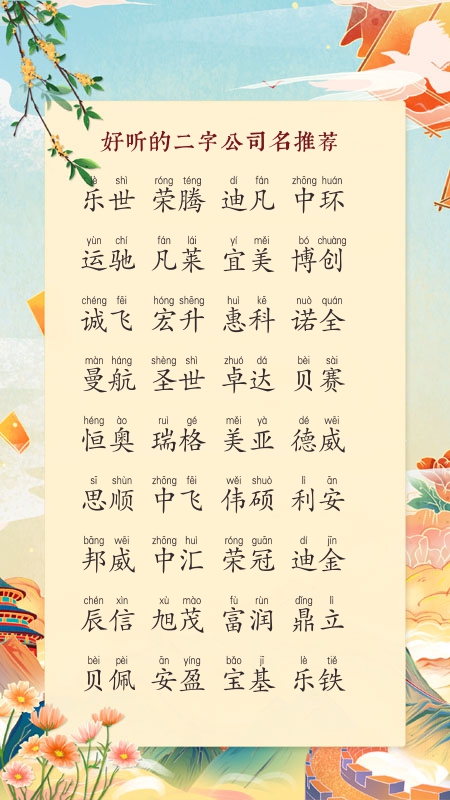 好听的二字公司名推荐
lè shì róng téng dí fán zhōng huán
乐世 荣腾 迪凡 中环
yùn chí fán lái yí měi bó chuàng
运驰 凡莱 宜美 博创
chéng fēi hóng shēng huì kē nuò quán
诚飞 宏升 惠科 诺全
màn háng shèng shì zhuó dá bèi sài
曼航 圣世 卓达 贝赛
héng ào ruì gé měi yà dé wēi
恒奥 瑞格 美亚 德威
sī shùn zhōng fēi wěi shuò lì ān
思顺 中飞 伟硕 利安
bāng wēi zhōng huì róng guān dí jīn
邦威 中汇 荣冠 迪金
chén xìn xù mào fù rùn dǐng lì
辰信 旭茂 富润 鼎立
bèi pèi ān yíng bǎo jī lè tiě
贝佩 安盈 宝基 乐铁